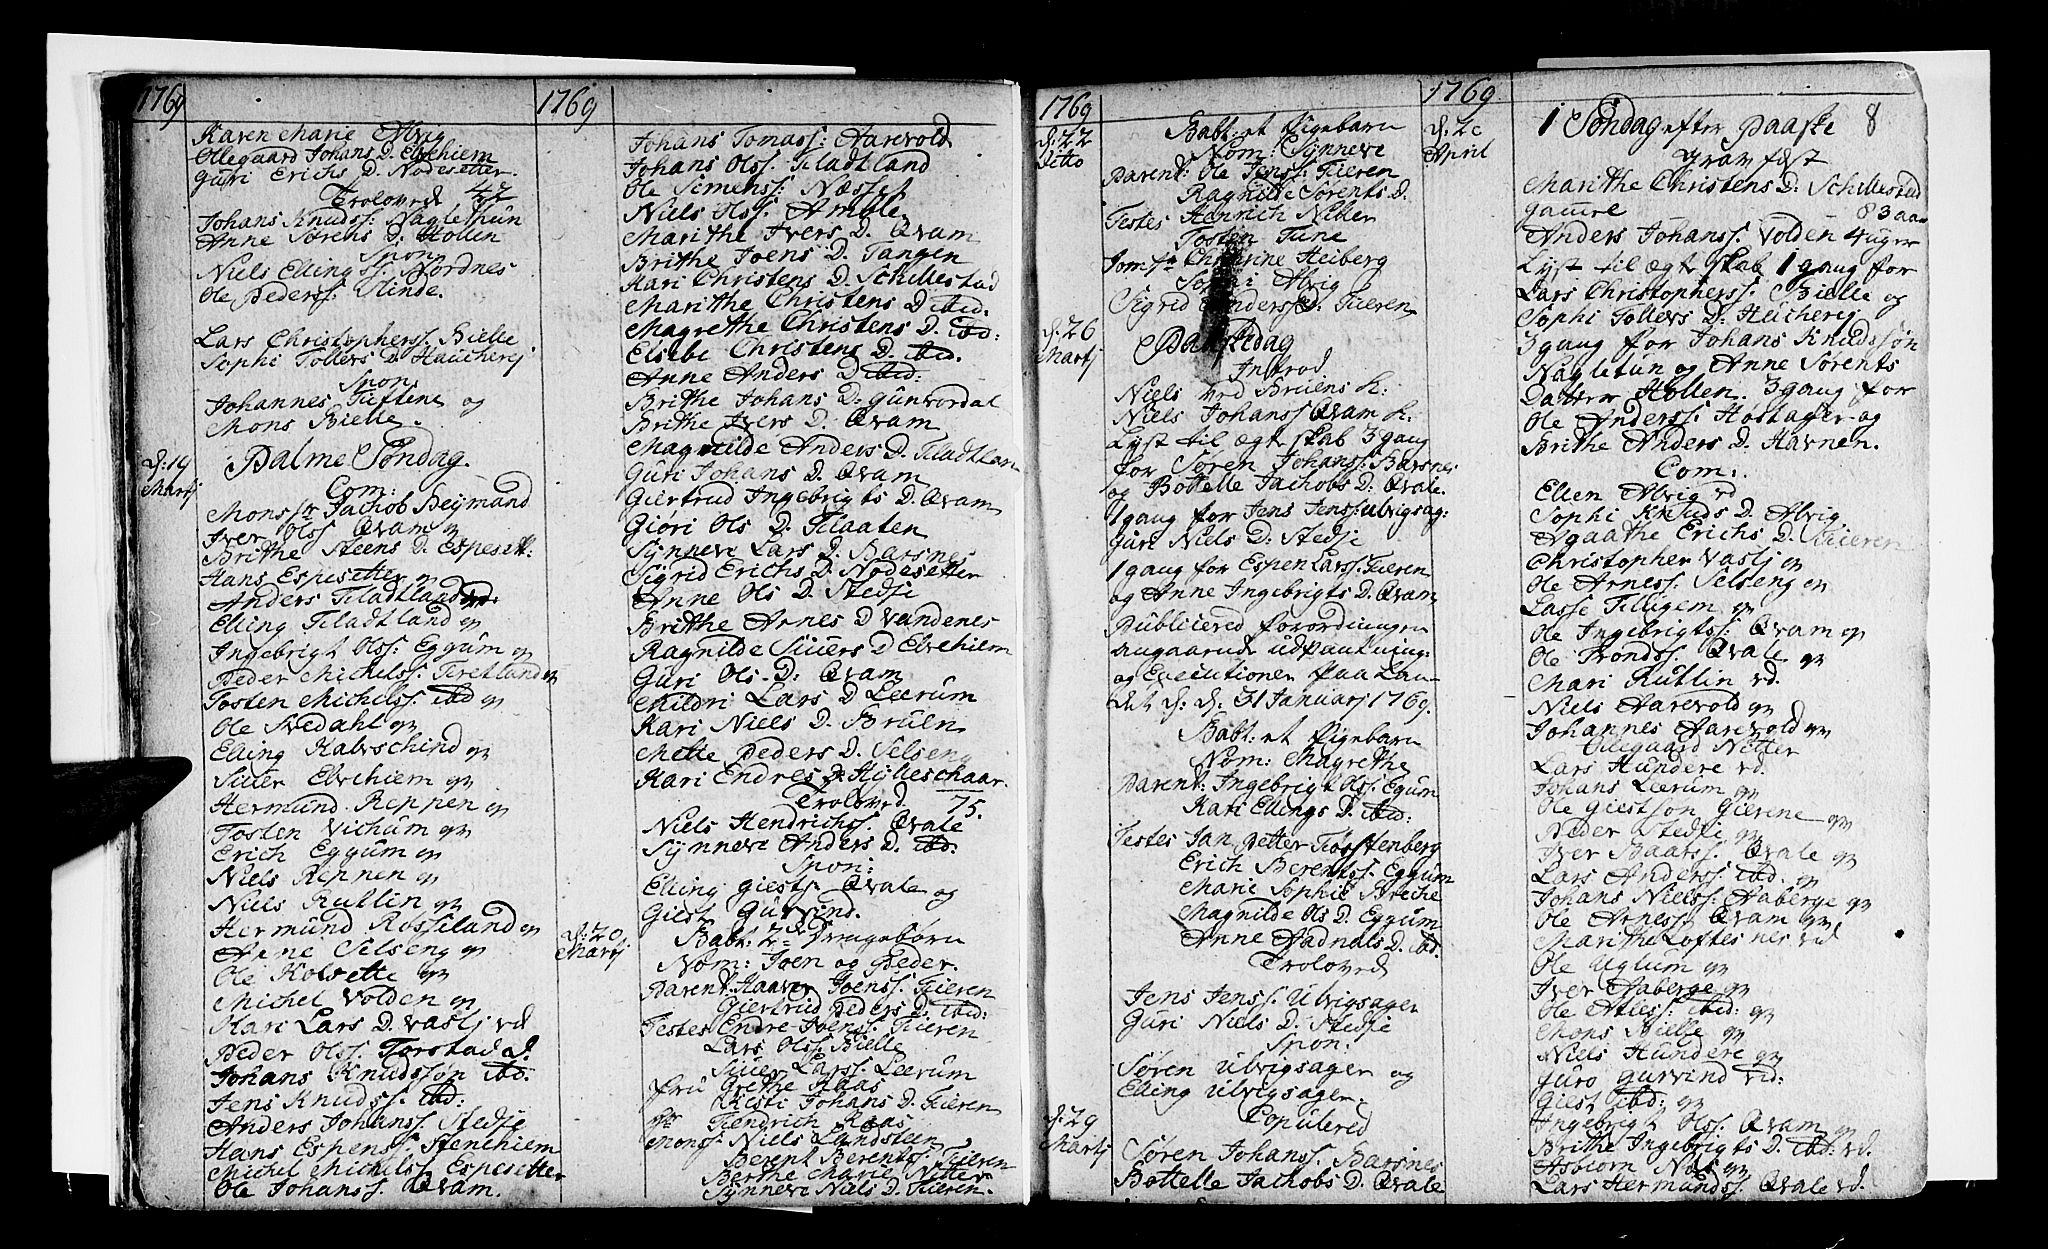 1769
Karen Marie Alvig
Ollegaard Johans D. Elvehiem
Guri Erichs D. Nodesetter
42
Troloved
Johans Knudss: Naglethun
Anne Sørens D. Hollen
Spon:
Niels Ellings. Nordnes
Ole Pederss: Slinde.
Lars Christophers. Bielle
Sophi Tollers D. Hauchery
Spon:
Johannes Tuftene og
Mons Bielle.
d: 19
Martj
Palme Søndag.
Com:
Monsr Jachob Heymand
Iver Olss Qvam
Brithe Steens D. Espeset:
Hans Espesetter
Anders Fladtland
Elling Fladtland
Ingebrigt Olss: Eggum
Peder Michelss.
Tosten Michelss. Ibd
Ole Svedahl
Elling Kalvschind
Siuer Elvehiem
Hermund Reppen
Tosten Vichum
Erich Eggum
Niels Reppen
Niels Rutlin
Hermund Rosseland
Arne Selseng
Ole Kolvette
Michel Volden
Mari Lars D. Vastj vd
Peder Olss. Torstad d.
Johans Knudssøn ibd.
Jens Knudss. ibd:
Anders Johanss. Stedje
Hans Espenss. Stenehiem
Michel Michelss Espesetter
Ole Johanss. Qvam.
1769
Johans Tomass: Aarevold
Johans Olss. Fladtland
Ole Simenss: Næsse
Niels Olss. Amble
Marithe Ivers D. Qvam
Brithe Joens D. Tangen
Kari Christens D. Schillestad
Marithe Christens D. ibid.
Magrethe Christens D. ibd:
Elsebe Christens D. ibd.
Anne Anders D ibid:
Brithe Johans D. Gunvordal
Brithe Ivers D. Qvam
Magnilde Anders D. Fladtland
Guri Johans D. Qvam
Giertrud Ingebrigts D. Qvam
Giøri Ols D. Flaaten
Synneve Lars D. Barsnes
Sigrid Erichs D. Nodesetter
Anne Ols D. Stedje
Brithe Arnes D Vandenes
Ragnilde Siuers D Elvehiem
Guri Ols D: Qvam
Mildri Lars D Leerum
Kari Niels D. Bruen
Mette Peders D. Selseng
Kari Endres D Hylleschaar
75.
Trolovd
Niels Hendrichss. Qvale
Synneve Anders D. ibd.
Spon:
Elling Giests. Qvale og
Giest Gurvind.
d: 20
Martj
Babt: 2de Drengebørn
Nom: Joen og Peder.
Parent: Haaver Joenss. Fieren
Giertrud Peders D. ibid:
Testes Endre Joenss: Fieren
Lars Olss. Bielle
Siuer Larss. Leerum
Fru Grethe Haas
Kisti Johans D. Fieren
Hr Hendrich Haas
Mons: Niels Landsteen
Berent Berents. Fieren
Berthe Marie Nitter
Synneve Niels D. Fieren.
1769
d: 22
Ditto
Babt: et Pigebarn
Nom: Synneve
Parent: Ole Jenss: Fieren
Ragnilde Sørents D.
Testes Henrich Nitter
Tosten Tune
Jomfr Christine Heiberg
Sophi Alvig
Sigrid Anders D: Fieren
d: 26
Martj
Paaskedag
Introd
Niels ved Bruens K:
Niels Johanss Qvam K:
Lyst til Egteskab 3 gang
for Søren Johanss: Barsnes
og Bottelle Jachobs D: Qvale.
1 gang for Jens Jenss: Ulvigsag:
Guri Niels D: Stedje
1 gang for Espen Larss. Fieren
og Anne Ingebrigts D. Qvam
Publicered forordningen
angaaende udpantning:
og Executioner paa Lan-
det d: d: 31 Januarj 1769.
Babt: et Pigebarn
Nom: Magrethe
Parent: Ingebrigt Olss. Eggum
Kari Ellings D. ibid:
Testes Jan Petter
Erich Berentss. Eggum
Marie Sophie Breche
Magnilde Ols D. Eggum
Anne Aadnals D. ibd.
Trolovd
Jens Jenss. Ulvigsager
Guri Niels D. Stedje
Spon:
Søren Ulvigsager og
Elling Ulvigsager.
d: 29
Martj
Copulered
Søren Johanss. Barsnes
Bottelle Jachobs D. Qvale
1769
d: 2
April
1 Søndag efter Paaske 8
Marithe Christens D: Schillestad
83 aar
Anders Johanss. Volden 4 uger
Lyst til Egteskab 1 gang for
Lars Christopherss. Bielle og
Sophi Tollers D: Hauchery
3 gang for Johans Knudssøn
Nagletun og Anne Sørents
Datter Hollen. 3 gang for
Ole Anderss. Høstager og
Brithe Anders D. Havnen.
Com:
Ellen Alvig vd
Sophi Knuds D. Alvig
Agaathe Erichs D. Fieren
Christopher Vastj
Ole Arness. Selseng
Lasse Tilligem
Ole Ingebrigtss. Qvam
Ole Trondss. Qvale
Mari Rutlin vd.
Niels Aarevold
Johannes Aarevold
Ollegaard Nitter
Lars Hundere vd.
Johans Leerum
Ole Giestsøn Gierene
Peder Stedje
Iver Baatss. Qvale
Lars Anderss ibd.
Johans Nielss. Aaberge
Ole Arness. Qvam
Marithe Loftesnes vd
Ole Uglum
Iver Aaberge
Ole Atless. ibid:
Mons Bielle
Niels Hundere
Guro Gurvind vd:
Giest ibd:
Ingebrigt Olss. Qvam
Brithe Ingebrigts D. ibd: vd.
Asbiorn Næs
Lars Hermundss. Qvale vd.